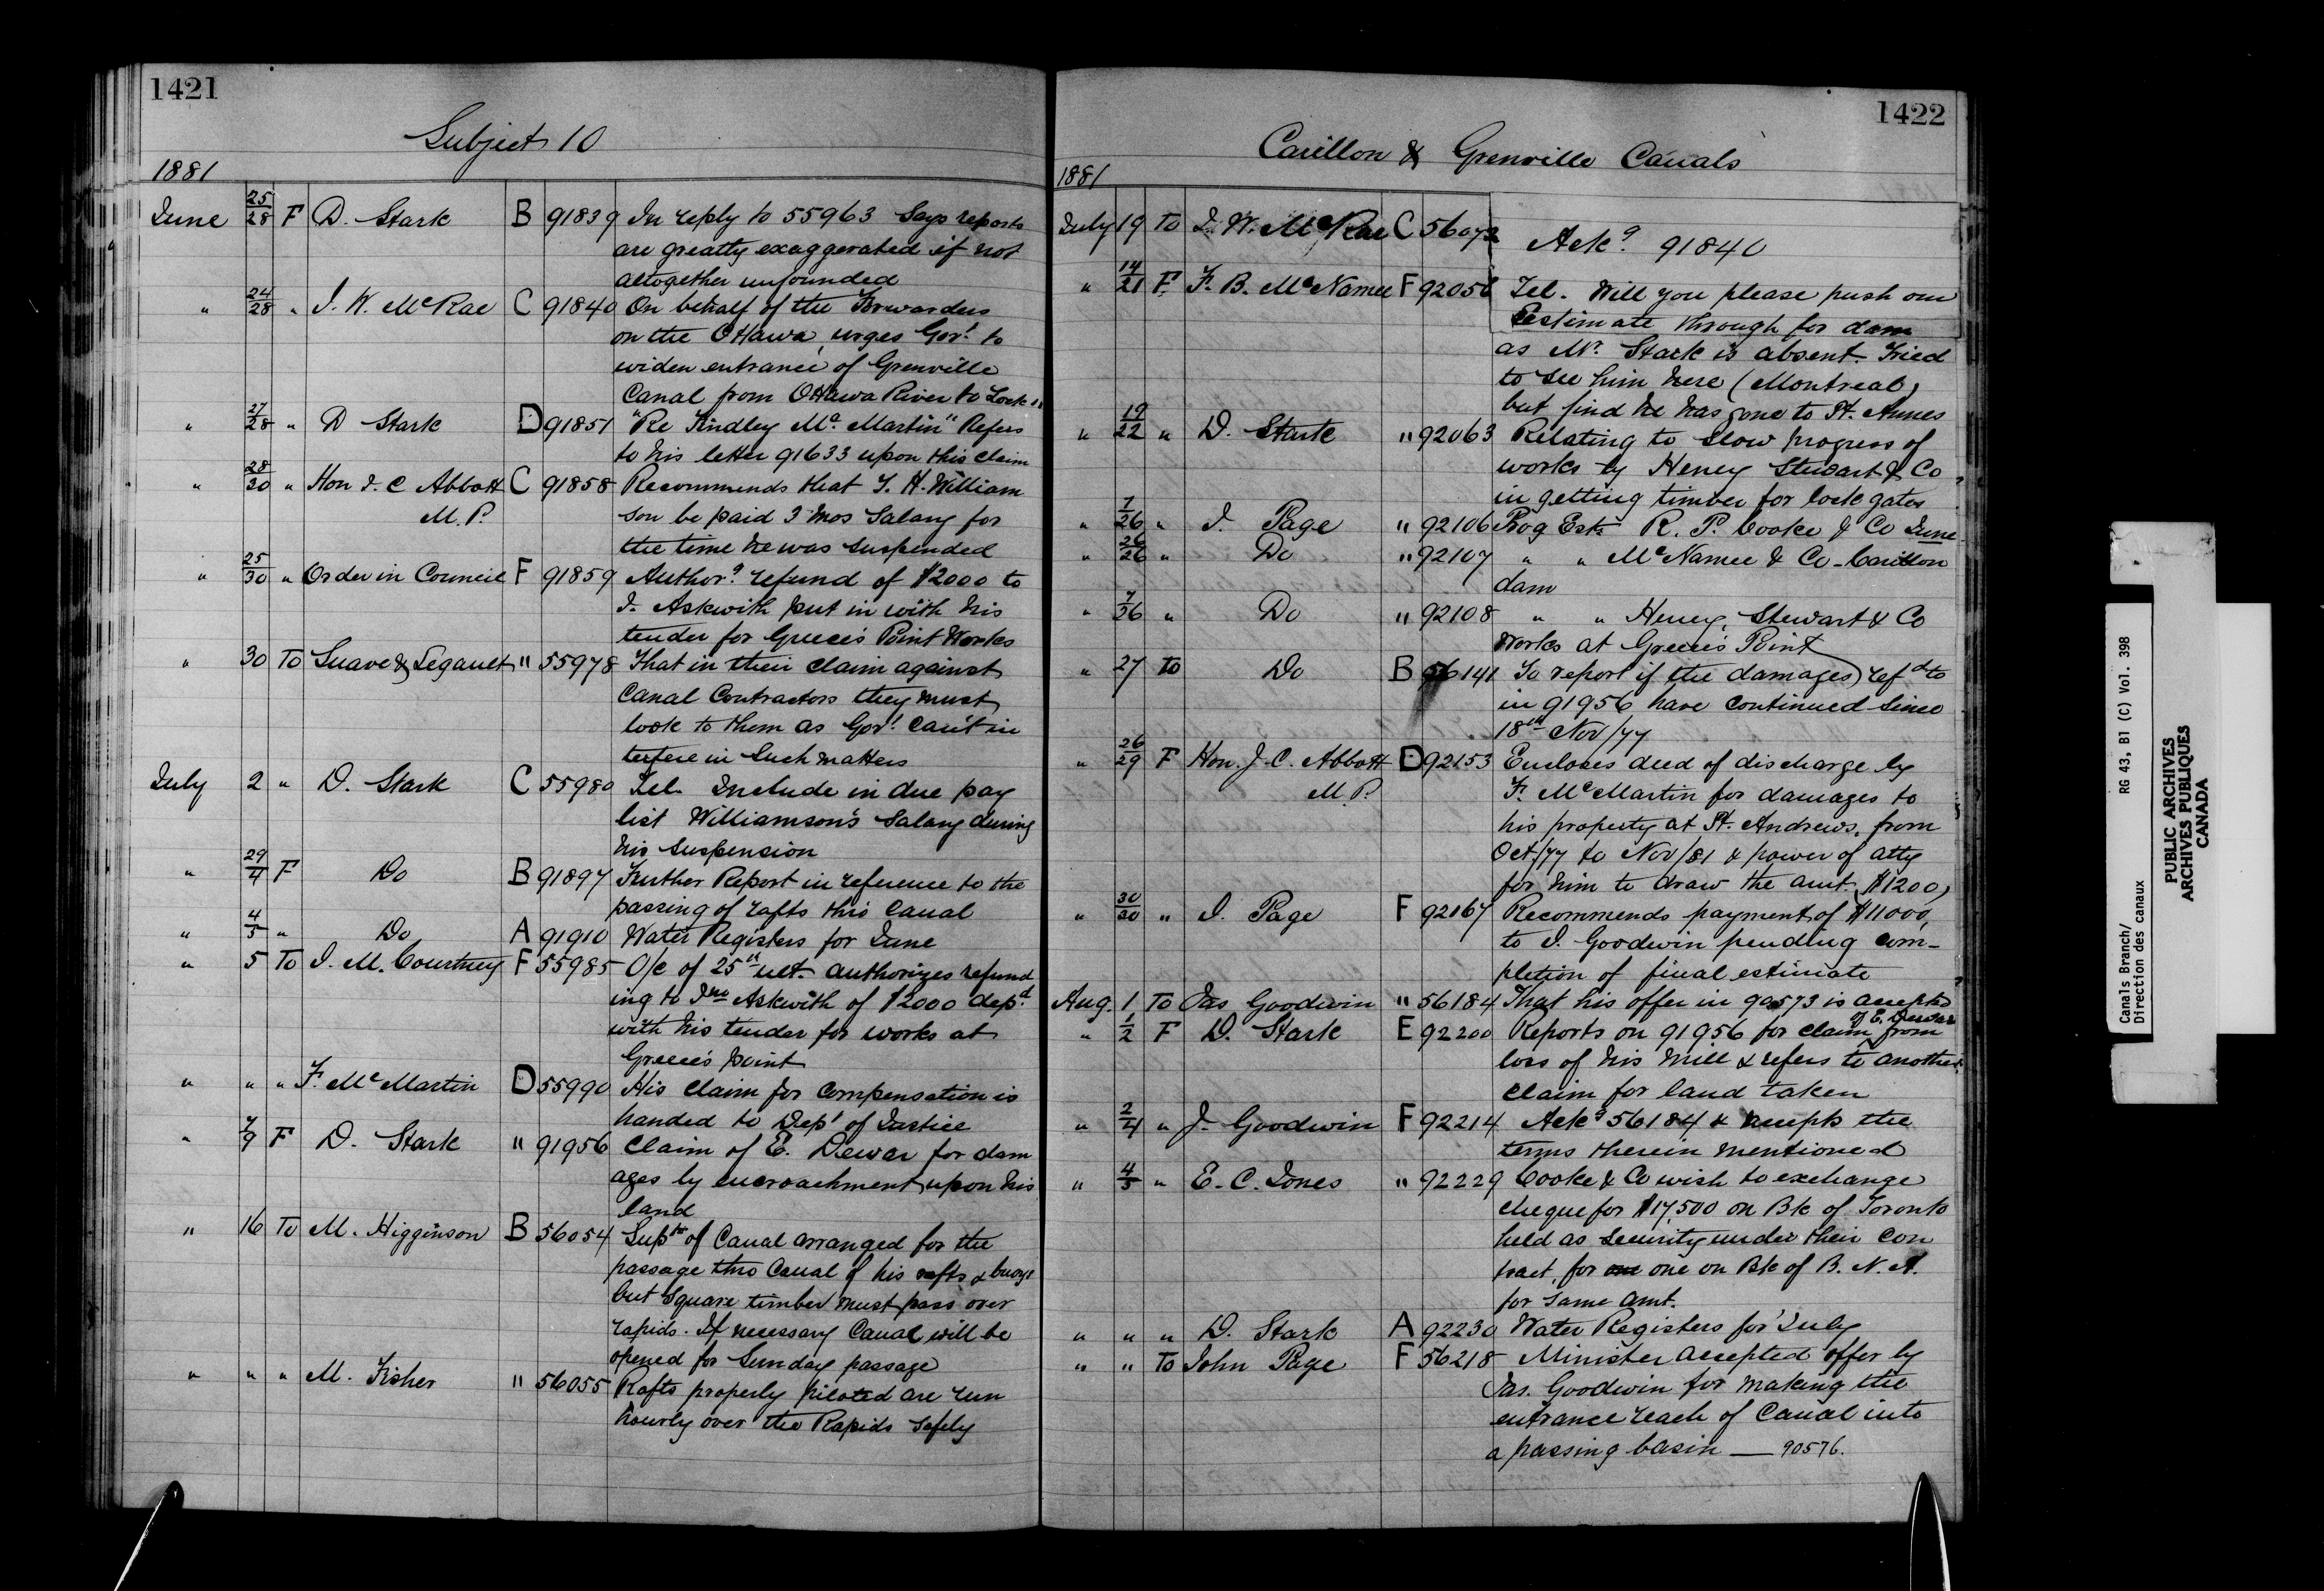 1421
Subject 10
1881
June 25/28 F D. Stark B 91839 In reply to 55963 Says reports
are greatly exaggerated if not
altogether unfounded
" 24/28 " J. W. McRae C 91840 On behalf of the Forwarders
on the Ottawa, urges Govt. to
widen entrance of Grenville
Canal from Ottawa River to Lock
" 27/28 " D Stark D 91851 "Re Findley Mc Martin" Refers
to his letter 91633 upon this claim
" 28/30 " Hon J. C Abbott C 91858 Recommends that T. H. William
M. P. son be paid 3 mos Salary for
the time he was suspended
" 25/30 " Order in Council F 91859 Authorg. refund of $2000 to
J. Askwith put in with his
tender for Greece's Point Works
" 30 To Suave & Legault " 55978 That in their claim against
Canal Contractors they must
look to them as Govt. can't in
terfere in such matters
July 2 " D. Stark C 55980 Tel. Include in due pay
list Williamson's Salary during
his suspension
" 29/4 F Do B 91897 Further Report in reference to the
passing of rafts thro Canal
" 4/5 " Do A 91910 Water Registers for June
" 5 To J. M. Courtney F 55985 O/c of 25th ult. authorizes refund
ing to Jno Askwith of $2000 depd
with his tender for works at
Greece's point
" " " F. McMartin D 55990 His claim for compensation is
handed to Dept of Justice
" 7/9 F D. Stark " 91956 Claim of E. Dewar for dam
ages by encroachment upon his
land
" 16 To M. Higginson B 56054 Suptr of Canal arranged for the
passage thro Canal of his rafts & buoys
but Square timber must pass over
rapids. If necessary Canal will be
opened for Sunday passage
" " " M. Fisher " 56055 Rafts properly piloted are run
hourly over the Rapids safely
1422
Carillon & Grenville Canals
1881
July 19 To J. W. McRae C 56072 Ackg. 91840
" 14/21 F. F. B. McNamee F 92056 Tel. Will you please push our
Estimate through for dam
as Mr. Stark is absent. Tried
to see him here (Montreal)
but find he has gone to St. Annes
" 19/22 " D. Stark " 92063 Relating to slow progress of
works by Heney Stewart & Co
in getting timber for lock gates
" 7/26 " J. Page " 92106 Prog Est. R. P. Cooke & Co June
" 26/26 " Do " 92107 " " McNamee & Co - Carillon
dam
" 7/26 " Do " 92108 " " Heney, Stewart & Co
Works at Greece's Point
" 27 To Do B 56141 To report if the damages refd to
in 91956 have continued since
18th Nov/77
" 26/29 F Hon. J. C. Abbott D 92153 Encloses deed of discharge by
M. P. F. McMartin for damages to
his property at St. Andrews, from
Oct/77 to Nov/81 & power of atty
for him to draw the amt. ($1200)
" 30/30 " J. Page F 92167 Recommends payment of $11000,
to J. Goodwin pending com-
pletion of final estimate
Aug. 1 To Jas Goodwin " 56184 That his offer in 90573 is accepted
of E. Dewar
" 1/2 F D. Stark E 92200 Reports on 91956 for claim from
loss of his mill & refers to another
claim for land taken
" 2/4 " J. Goodwin F 92214 Ackg 56184 & accepts the
terms therein mentioned
" 4/5 " E. C. Jones " 92229 Cooke & Co wish to exchange
cheque for $17,500 on Bk of Toronto
held as Security under their Con
tract, for one on Bk of B. N. A.
for same amt.
" " " D. Stark A 92230 Water Registers for July
" " To John Page F 56218 Minister accepted offer by
Jas. Goodwin for making the
entrance reach of Canal into
a passing basin — 90576.
Canals Branch/ RG 43, B1 (C) Vol. 398
Direction des canaux
PUBLIC ARCHIVES
ARCHIVES PUBLIQUES
CANADA